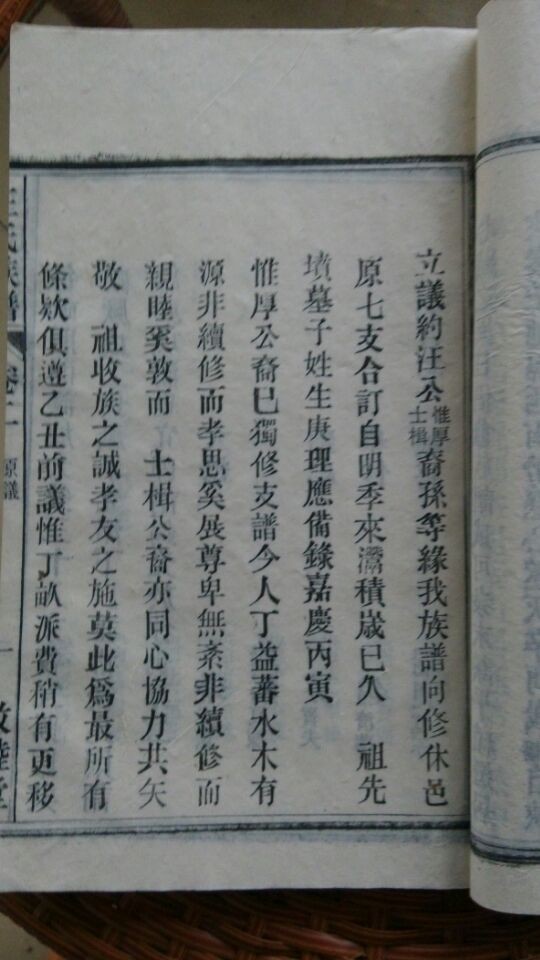 立議約汪公惟厚士楫裔孫等緣我族譜向修休邑
原七支合訂自明季來濳積歲已久　祖先
墳墓子姓生庚理應備錄嘉慶丙寅
惟厚公裔巳獨修支譜今人丁益蕃水木有
源非續修而孝思奚展尊卑無紊非續修而
親睦奚敦而　士楫公裔亦同心協力共矢
敬　祖收族之誠孝友之施莫此爲最所有
條欵俱遵乙丑前議惟丁畝派費稍有更移
汪氏族譜　卷一　原議　一　敦睦堂